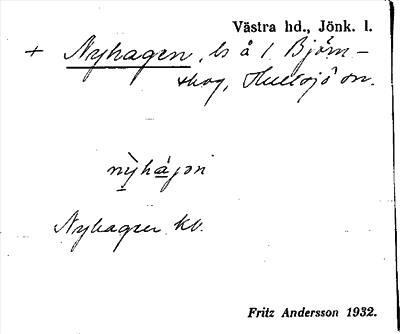 Västra hd., Jönk. l.
+ Nyhagen, ls å 1 Björn-
skog, Hullsjö sn.
nỳhájən
Nyhagen kv.
Fritz Andersson 1932.